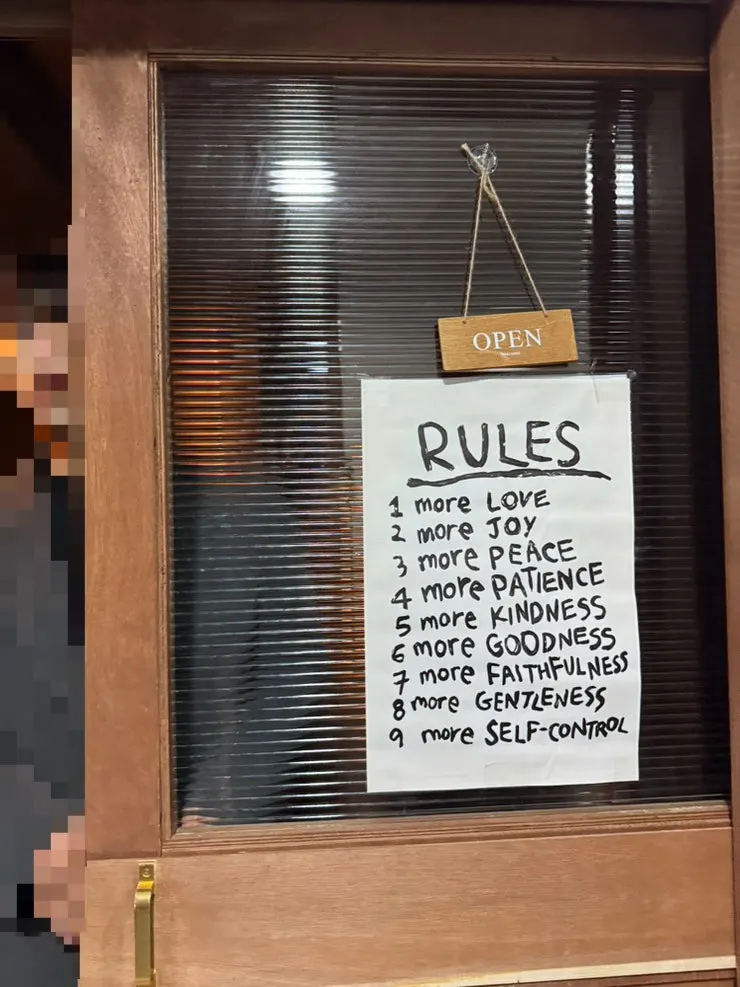 OPEN
RULES
1 more LOVE
2 more JOY
3 more PEACE
4 more PATIENCE
5 more KINDNESS
6 more GOODNESS
7 more FAITHFULNESS
8 more GENTLENESS
9 more SELF-CONTROL